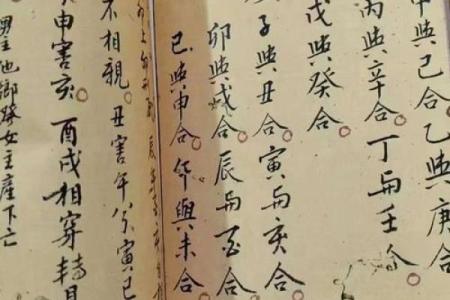 甲與己合。乙與庚合
丙與辛合。丁与壬合。
戊與癸合。
子與丑合。寅与亥合。
卯與戌合。辰与酉合。
巳與申合。午與未合
不相親。丑害午兮寅巳
申害亥。酉戌相穿轉
男主他鄉女主產下亡